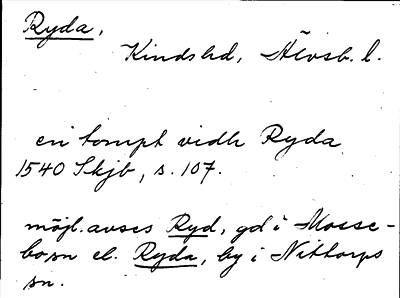 Ryda,
Kinds hd, Älvsb. l.
en tompt vidh Ryda
1540 Skjb, s. 107.
möjl. avses Ryd, gd i Mosse-
bo sn el. Ryda, by i Nittorps
sn.